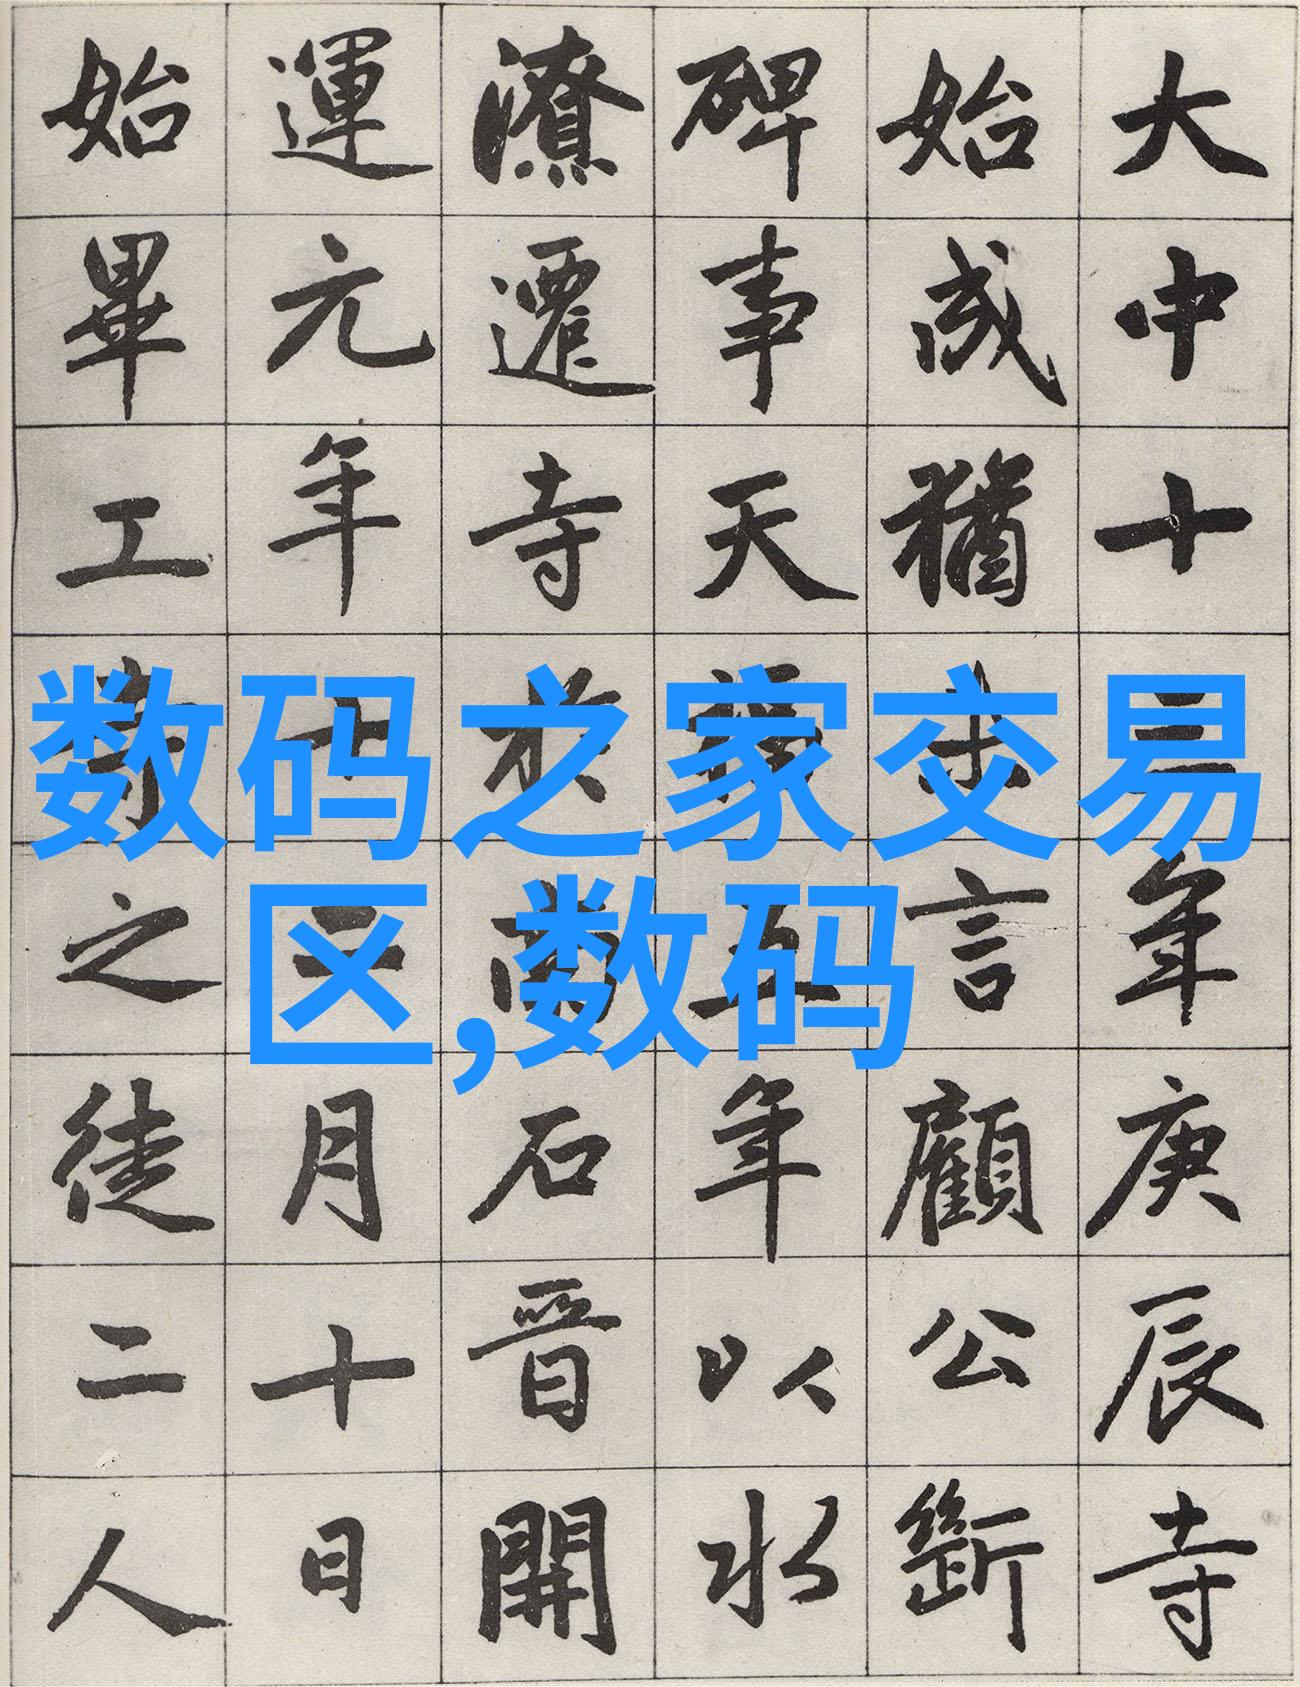 大中十三年庚辰寺
始成猶未言顧公
碑事天福五年以水
潦遷寺於高石晉開
運元年十二月十日
始畢工寺之徒二人
数码之家交易
区,数码